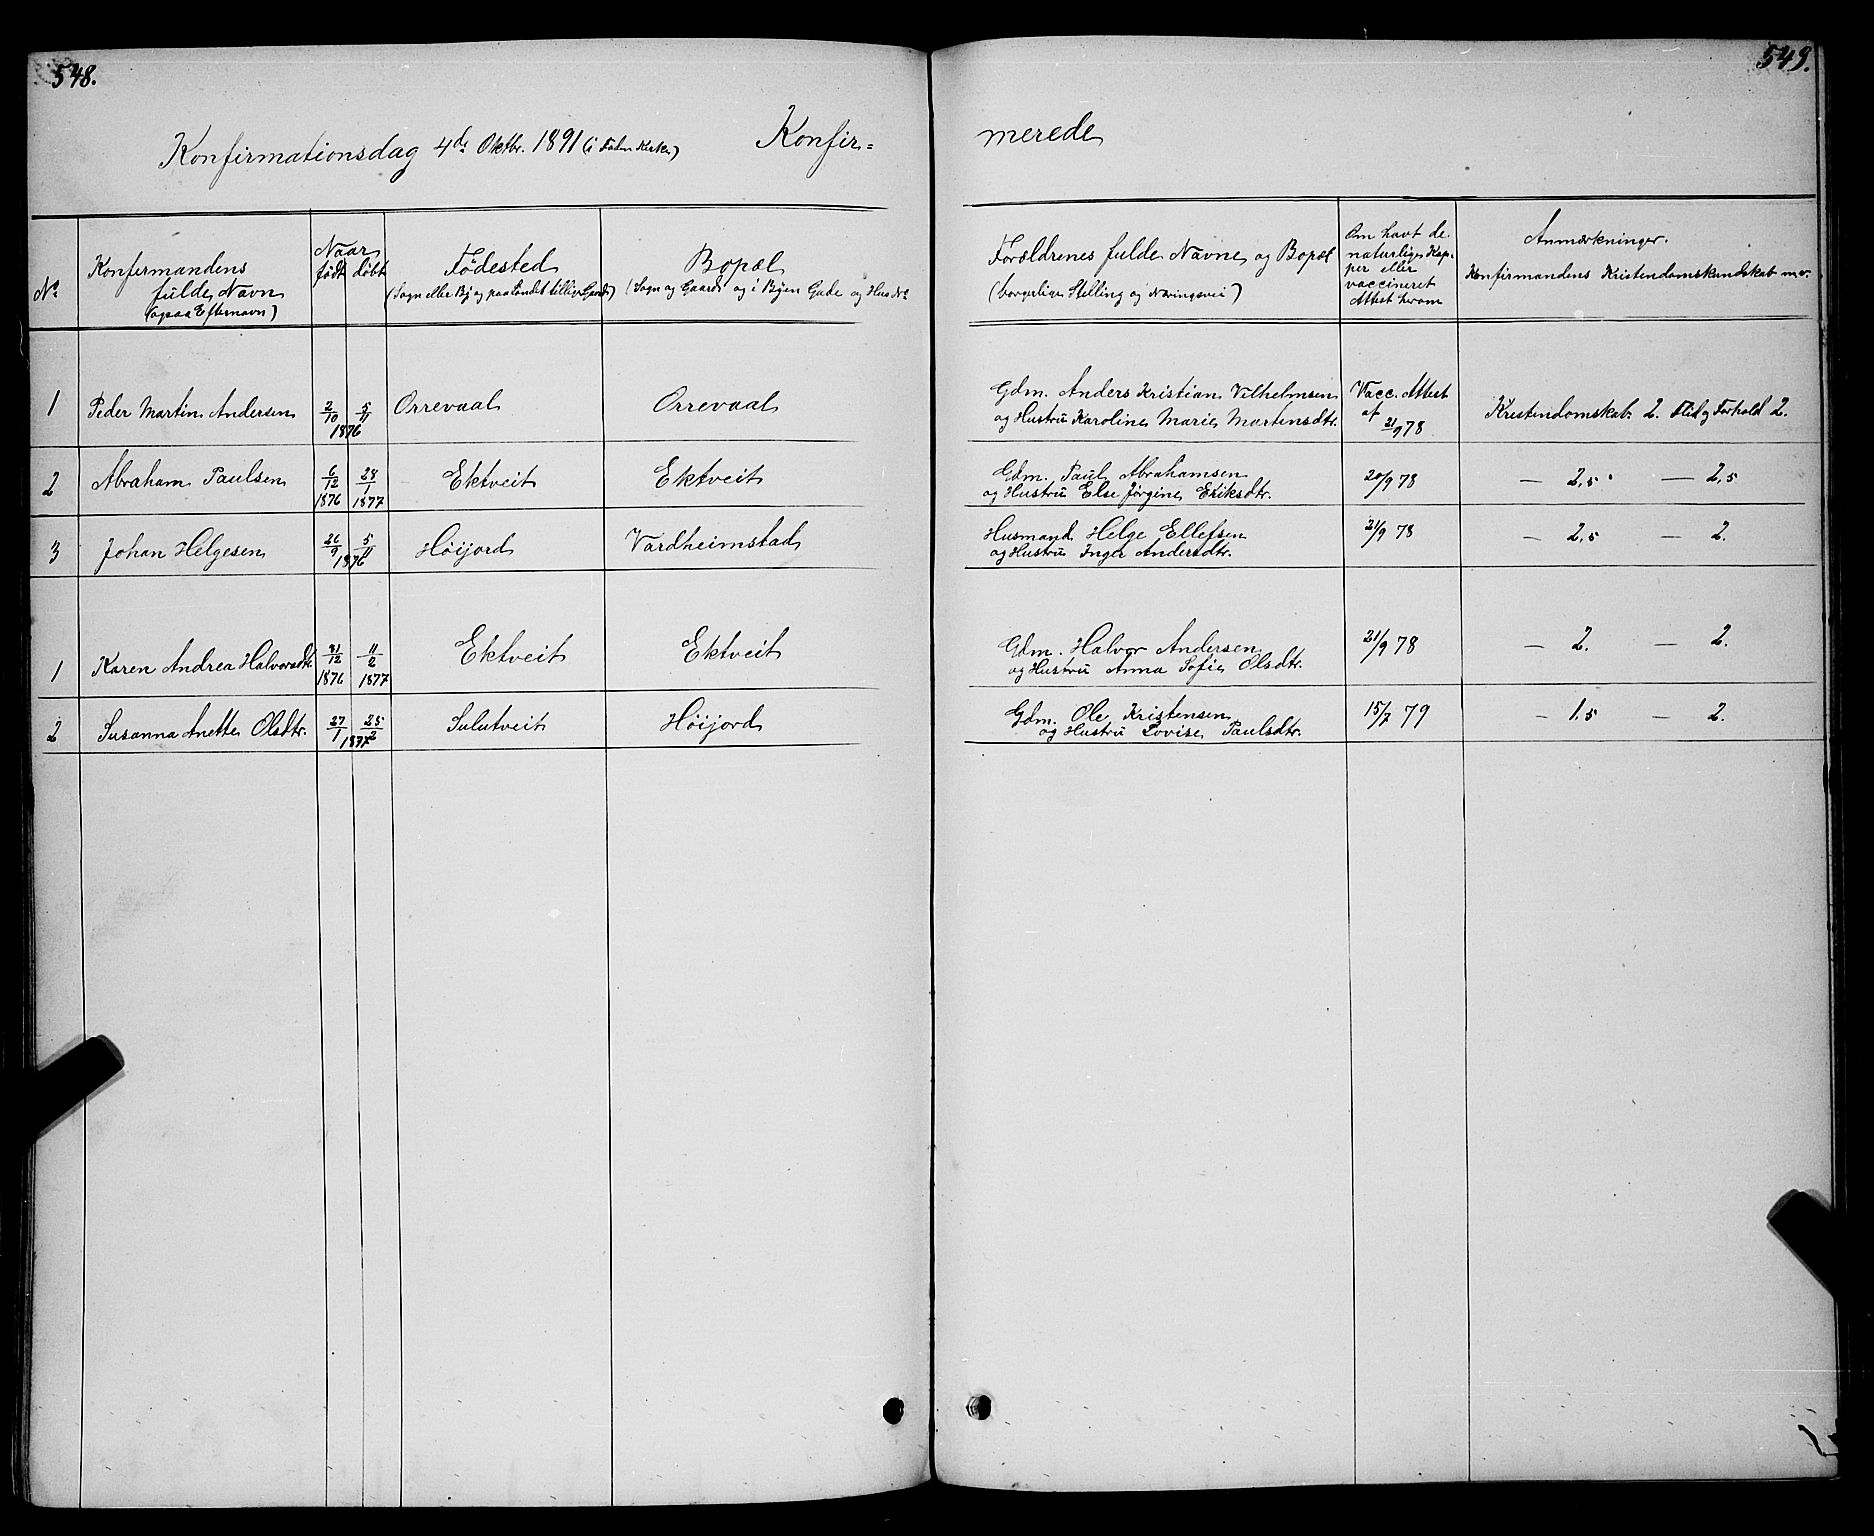 548.
549.
Konfirmationsdag 4de Oktbr. 1891 (i Kirke)
Konfir=
merede
No
Konfirmandens
fulde Navn
(ogsaa Efternavn)
Naar
født
døbt
Fødested
(Sogn eller By og paa Landet tillige Gaard)
Bopæl
(Sogn og Gaard og i Byen Gade og Hus No
Forældrenes fulde Navne og Bopæl
(borgerlige Stilling og Næringsvei)
Om havt de
naturlige Kop-
per eller
vaccineret
Attest herom
Anmærkninger.
Konfirmandens Kristendomskundskab m.v.
1 Peder Martin Andersen 2/10 5/11 1876 Orrevaal Orrevaal
Gdm. Anders Kristian Vilhelmsen
og Hustru Karoline Marie Martinsdtr.
Vacc. Attest
af 21/9 78
Kristendomskab. 2. Flid og Forhold 2.
2 Abraham Paulsen 6/12 1876 28/1 1877 Ektveit Ektveit
Gdm. Paul Abrahamsen
og Hustru Else Jørgine Eriksdtr.
20/9 78 — 2,5 — 2,5
3 Johan Helgesen 26/9 5/11 1876 Høijord Vardheimstad
Husmand Helge Ellefsen
og Hustru Inger Andersdtr.
21/9 78 — 2,5 — 2.
1 Karen Andrea Halvorsdtr. 31/12 1876 11/2 1877 Ektveit Ektveit
Gdm. Halvor Andersen
og Hustru Anna Sofie Olsdtr.
21/9 78 — 2. — 2.
2 Susanna Anette Olsdtr. 27/1 25/2 1877 Sulutveit Høijord
Gdm. Ole Kristensen
og Hustru Lovise Paulsdtr.
15/7 79 — 1.5 — 2.